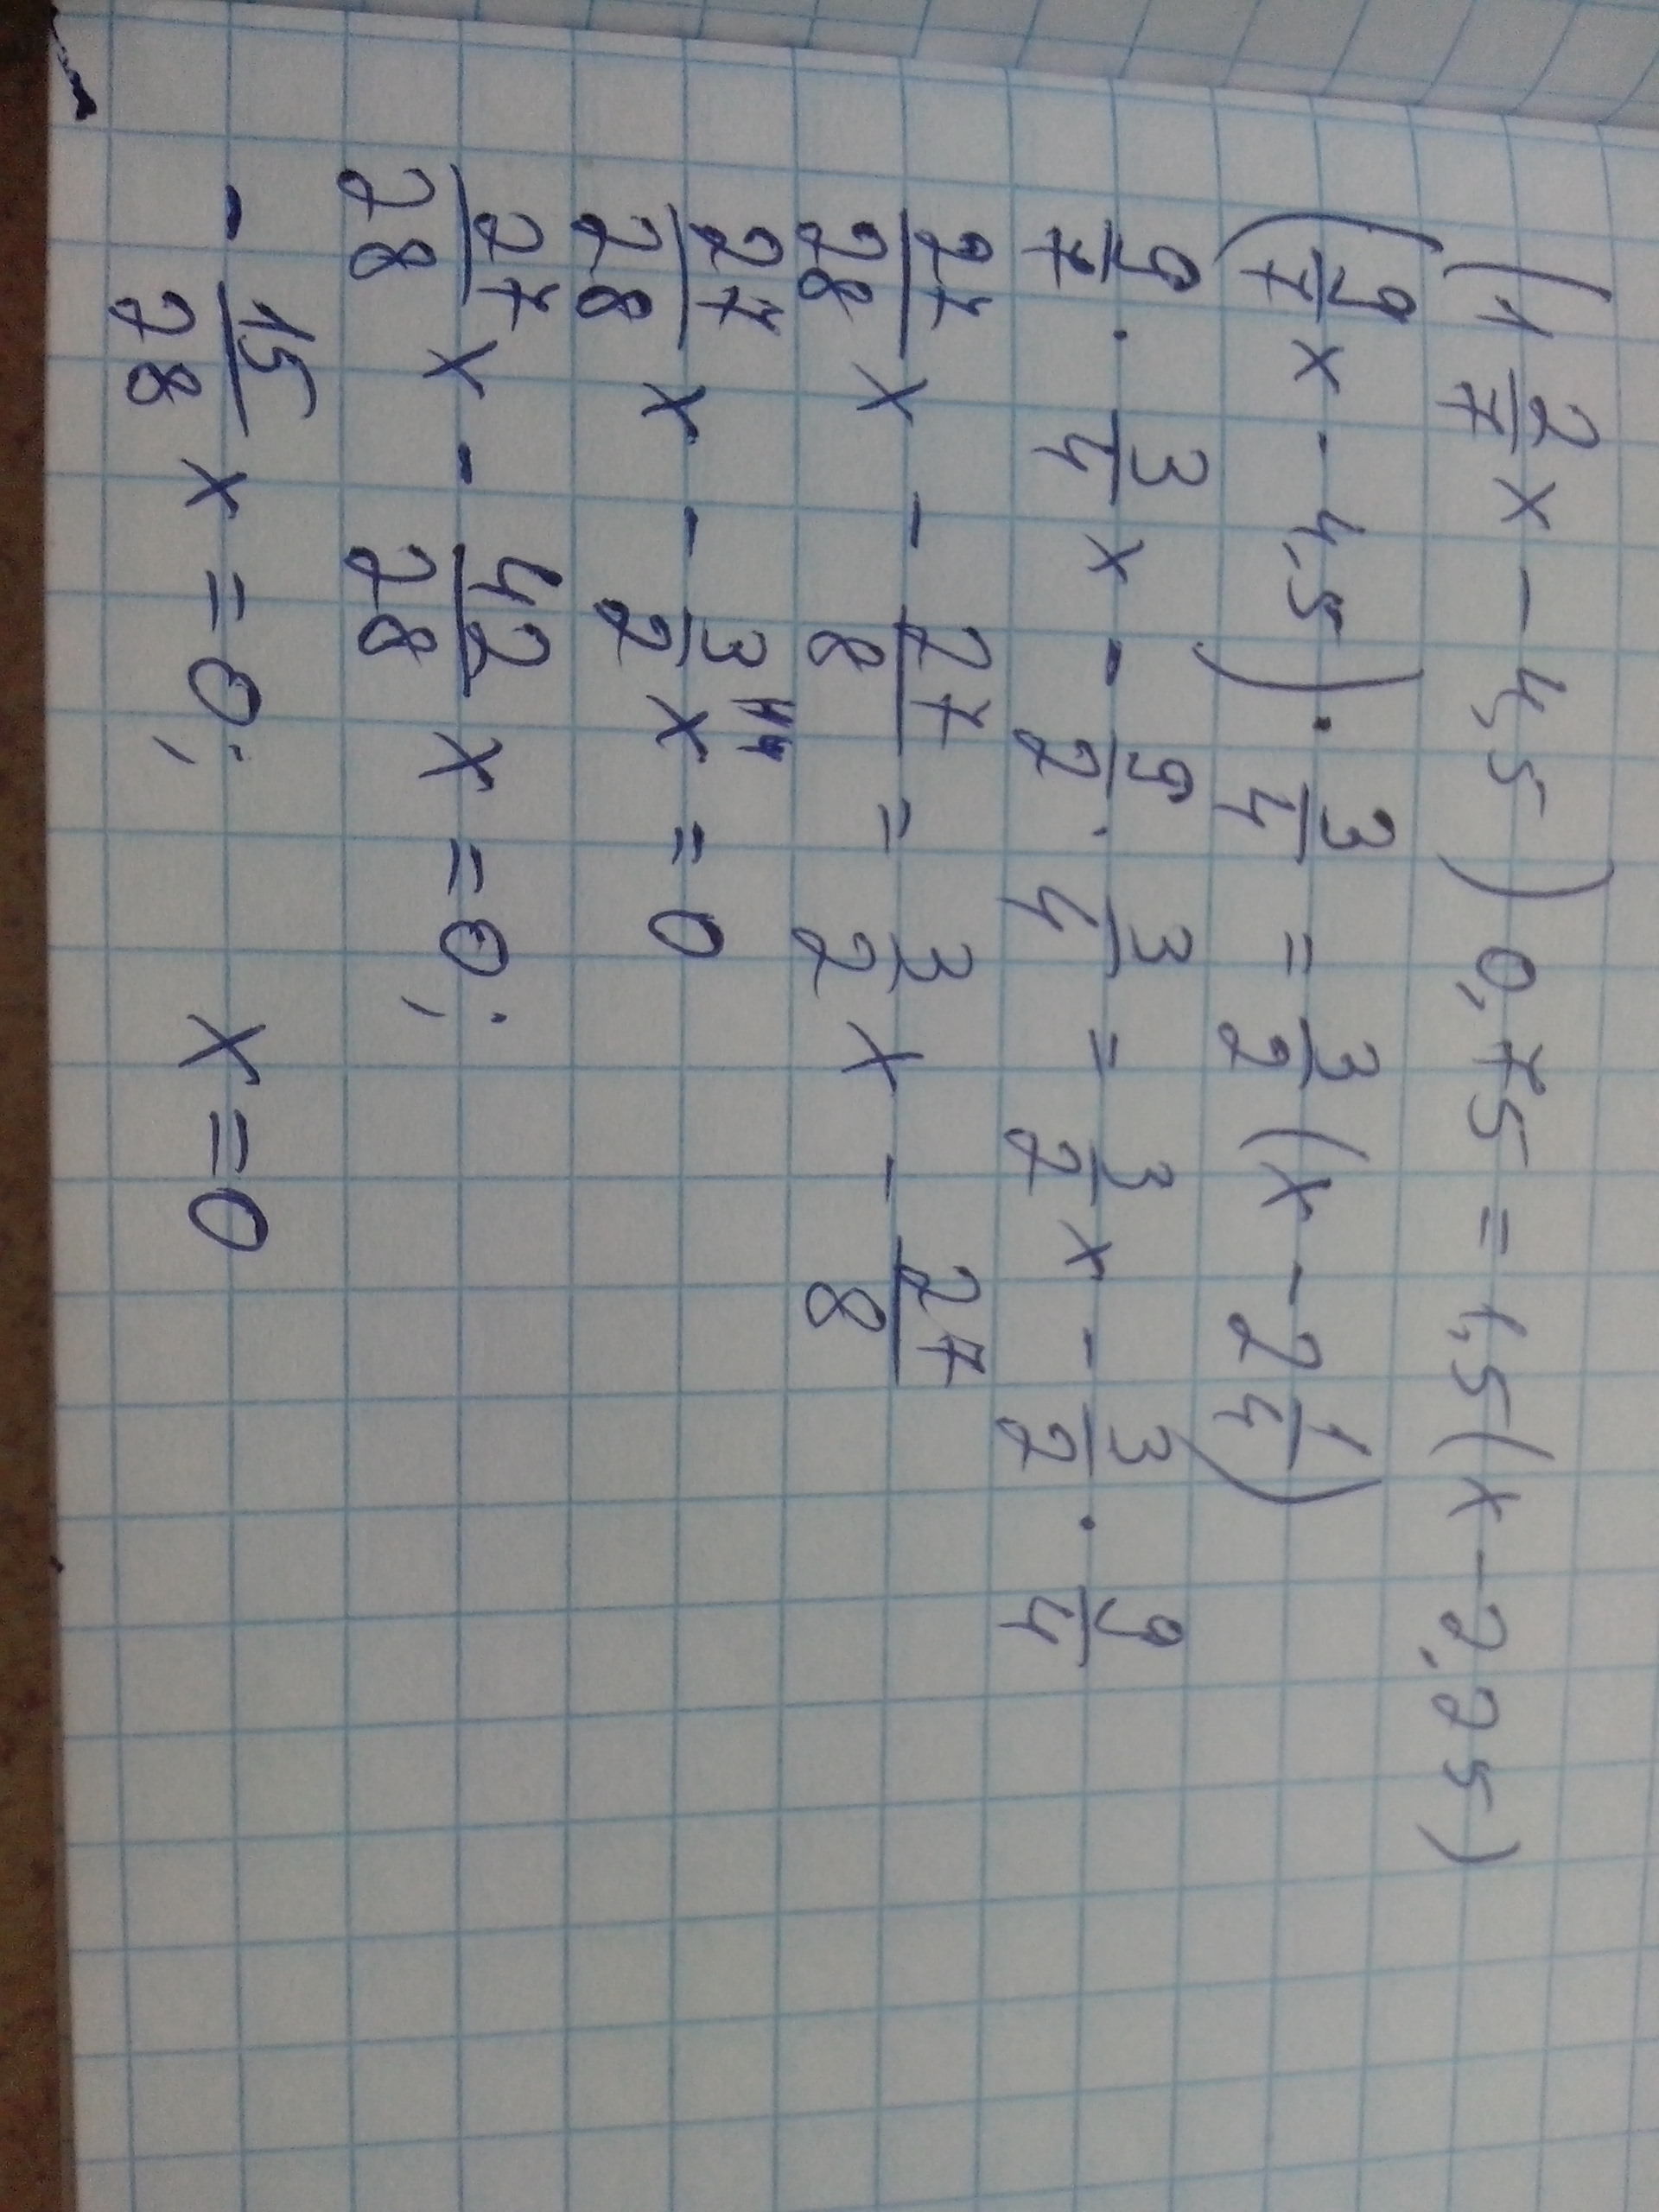 (1 2/7 x - 4,5) 0,75 = 1,5 (x - 2,25)
(9/7 x - 4,5) · 3/4 = 3/2 (x - 2 1/4)
9/7 · 3/4 x - 9/2 · 3/4 = 3/2 x - 3/2 · 9/4
27/28 x - 27/8 = 3/2 x - 27/8
27/28 x - 3/2 x = 0
27/28 x - 42/28 x = 0;
- 15/28 x = 0; x = 0